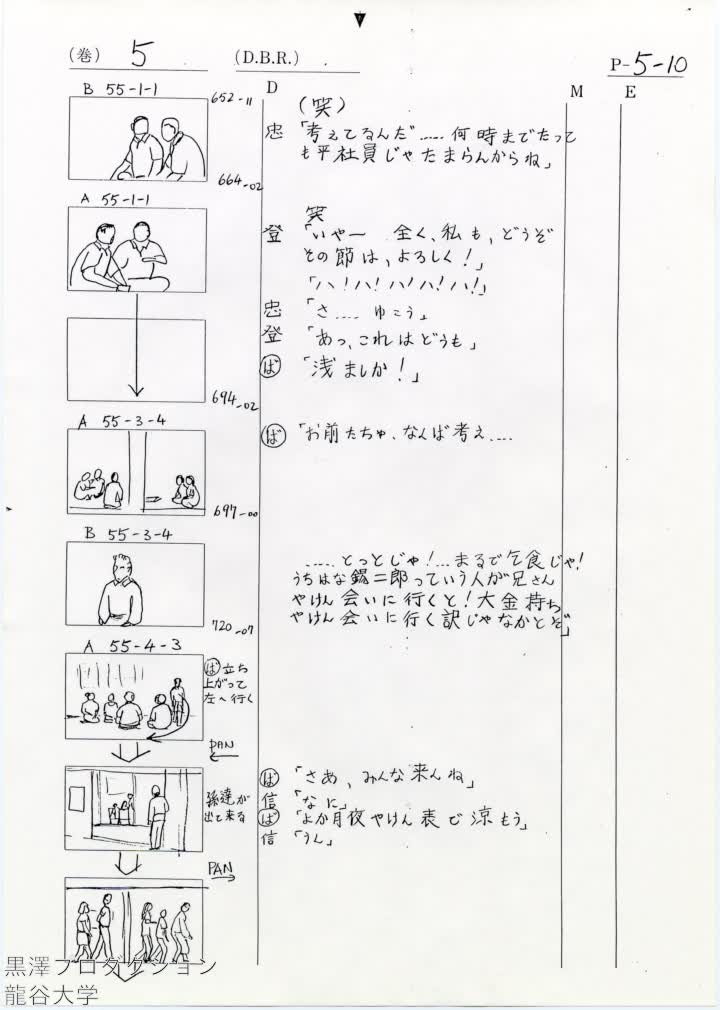 (巻) 5 (D.B.R.) P-5-10
D M E
B 55-1-1
652-11
(笑)
忠 「考えてるんだ……何時までたって
も平社員じゃたまらんからね」
664-02
A 55-1-1
笑
登 「いやー 全く、私も、どうぞ
その節は、よろしく!」
「ハ!ハ!ハ!ハ!ハ!」
忠 「さ…… ゆこう」
登 「あっ、これはどうも」
ば 「浅ましか!」
694-02
A 55-3-4
ば 「お前たちゃ、なんば考え……
697-00
B 55-3-4
……とっとじゃ!…まるで乞食じゃ!
うちはな錫二郎っていう人が兄さん
やけん会いに行くと!大金持ち
やけん会いに行く訳じゃなかとぞ」
720-07
A 55-4-3
ば立ち
上がって
左へ行く
PAN
ば 「さあ、みんな来んね」
孫達が
出て来る
信 「なに」
ば 「よか月夜やけん表で涼もう」
信 「うん」
PAN
黒澤プロダクション
龍谷大学